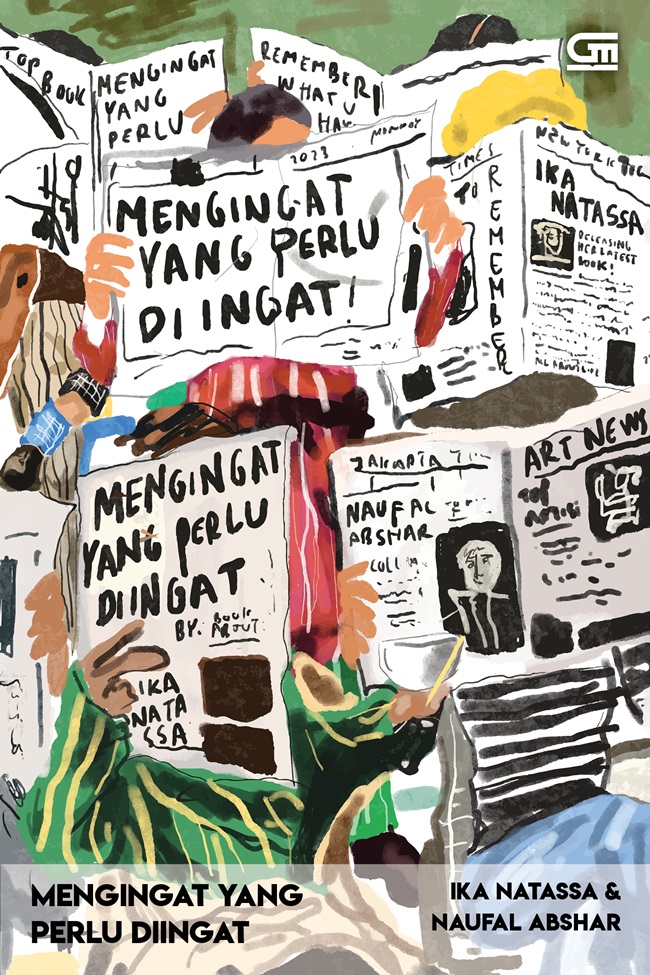 TOP BOOK
MENGINGAT
YANG
PERLU
REMEMBER
WHAT U
HAV
GM
2023
MONDAY
MENGINGAT
YANG PERLU
DIINGAT!
TIMES
REMEMBER
NEW YORK
IKA
NATASSA
RELEASING
HER LATEST
BOOK!
MENGINGAT
YANG PERLU
DIINGAT
BY:
BOOK
ABOUT
IKA
NATA
SSA
JAKARTA
NAUFAL
ABSHAR
ART NEWS
TOP
MENGINGAT YANG
PERLU DIINGAT
IKA NATASSA &
NAUFAL ABSHAR